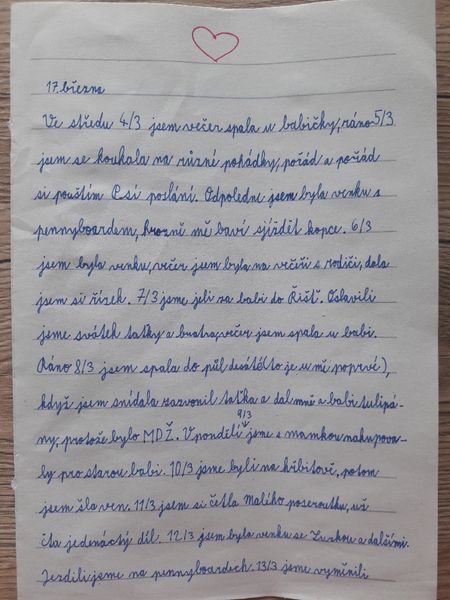 17. března
Ve středu 4/3 jsem večer spala u babičky, ráno 5/3
jsem se koukala na různé pohádky, pořád a pořád
si pouštím Psí poslání. Odpoledne jsem byla venku s
pennyboardem, hrozně mě baví sjíždět kopce. 6/3
jsem byla venku, večer jsem byla na večeři s rodiči, dala
jsem si řízek. 7/3 jsme jeli za babi do Řišť. Oslavili
jsme svátek taťky a bratra, večer jsem spala u babi.
Ráno 8/3 jsem spala do půl desáté (to je u mě poprvé),
když jsem snídala zazvonil taťka a dal mně a babi tulipá-
ny, protože bylo MDŽ. V pondělí 9/3 jsme s mamkou nakupova-
ly pro starou babi. 10/3 jsme byli na hřbitově, potom
jsem šla ven. 11/3 jsem si četla Malého poseroutku, už
čta jedenáctý díl. 12/3 jsem byla venku se Zuzkou a dalšími.
Jezdili jsme na pennyboardech. 13/3 jsme vyměnili